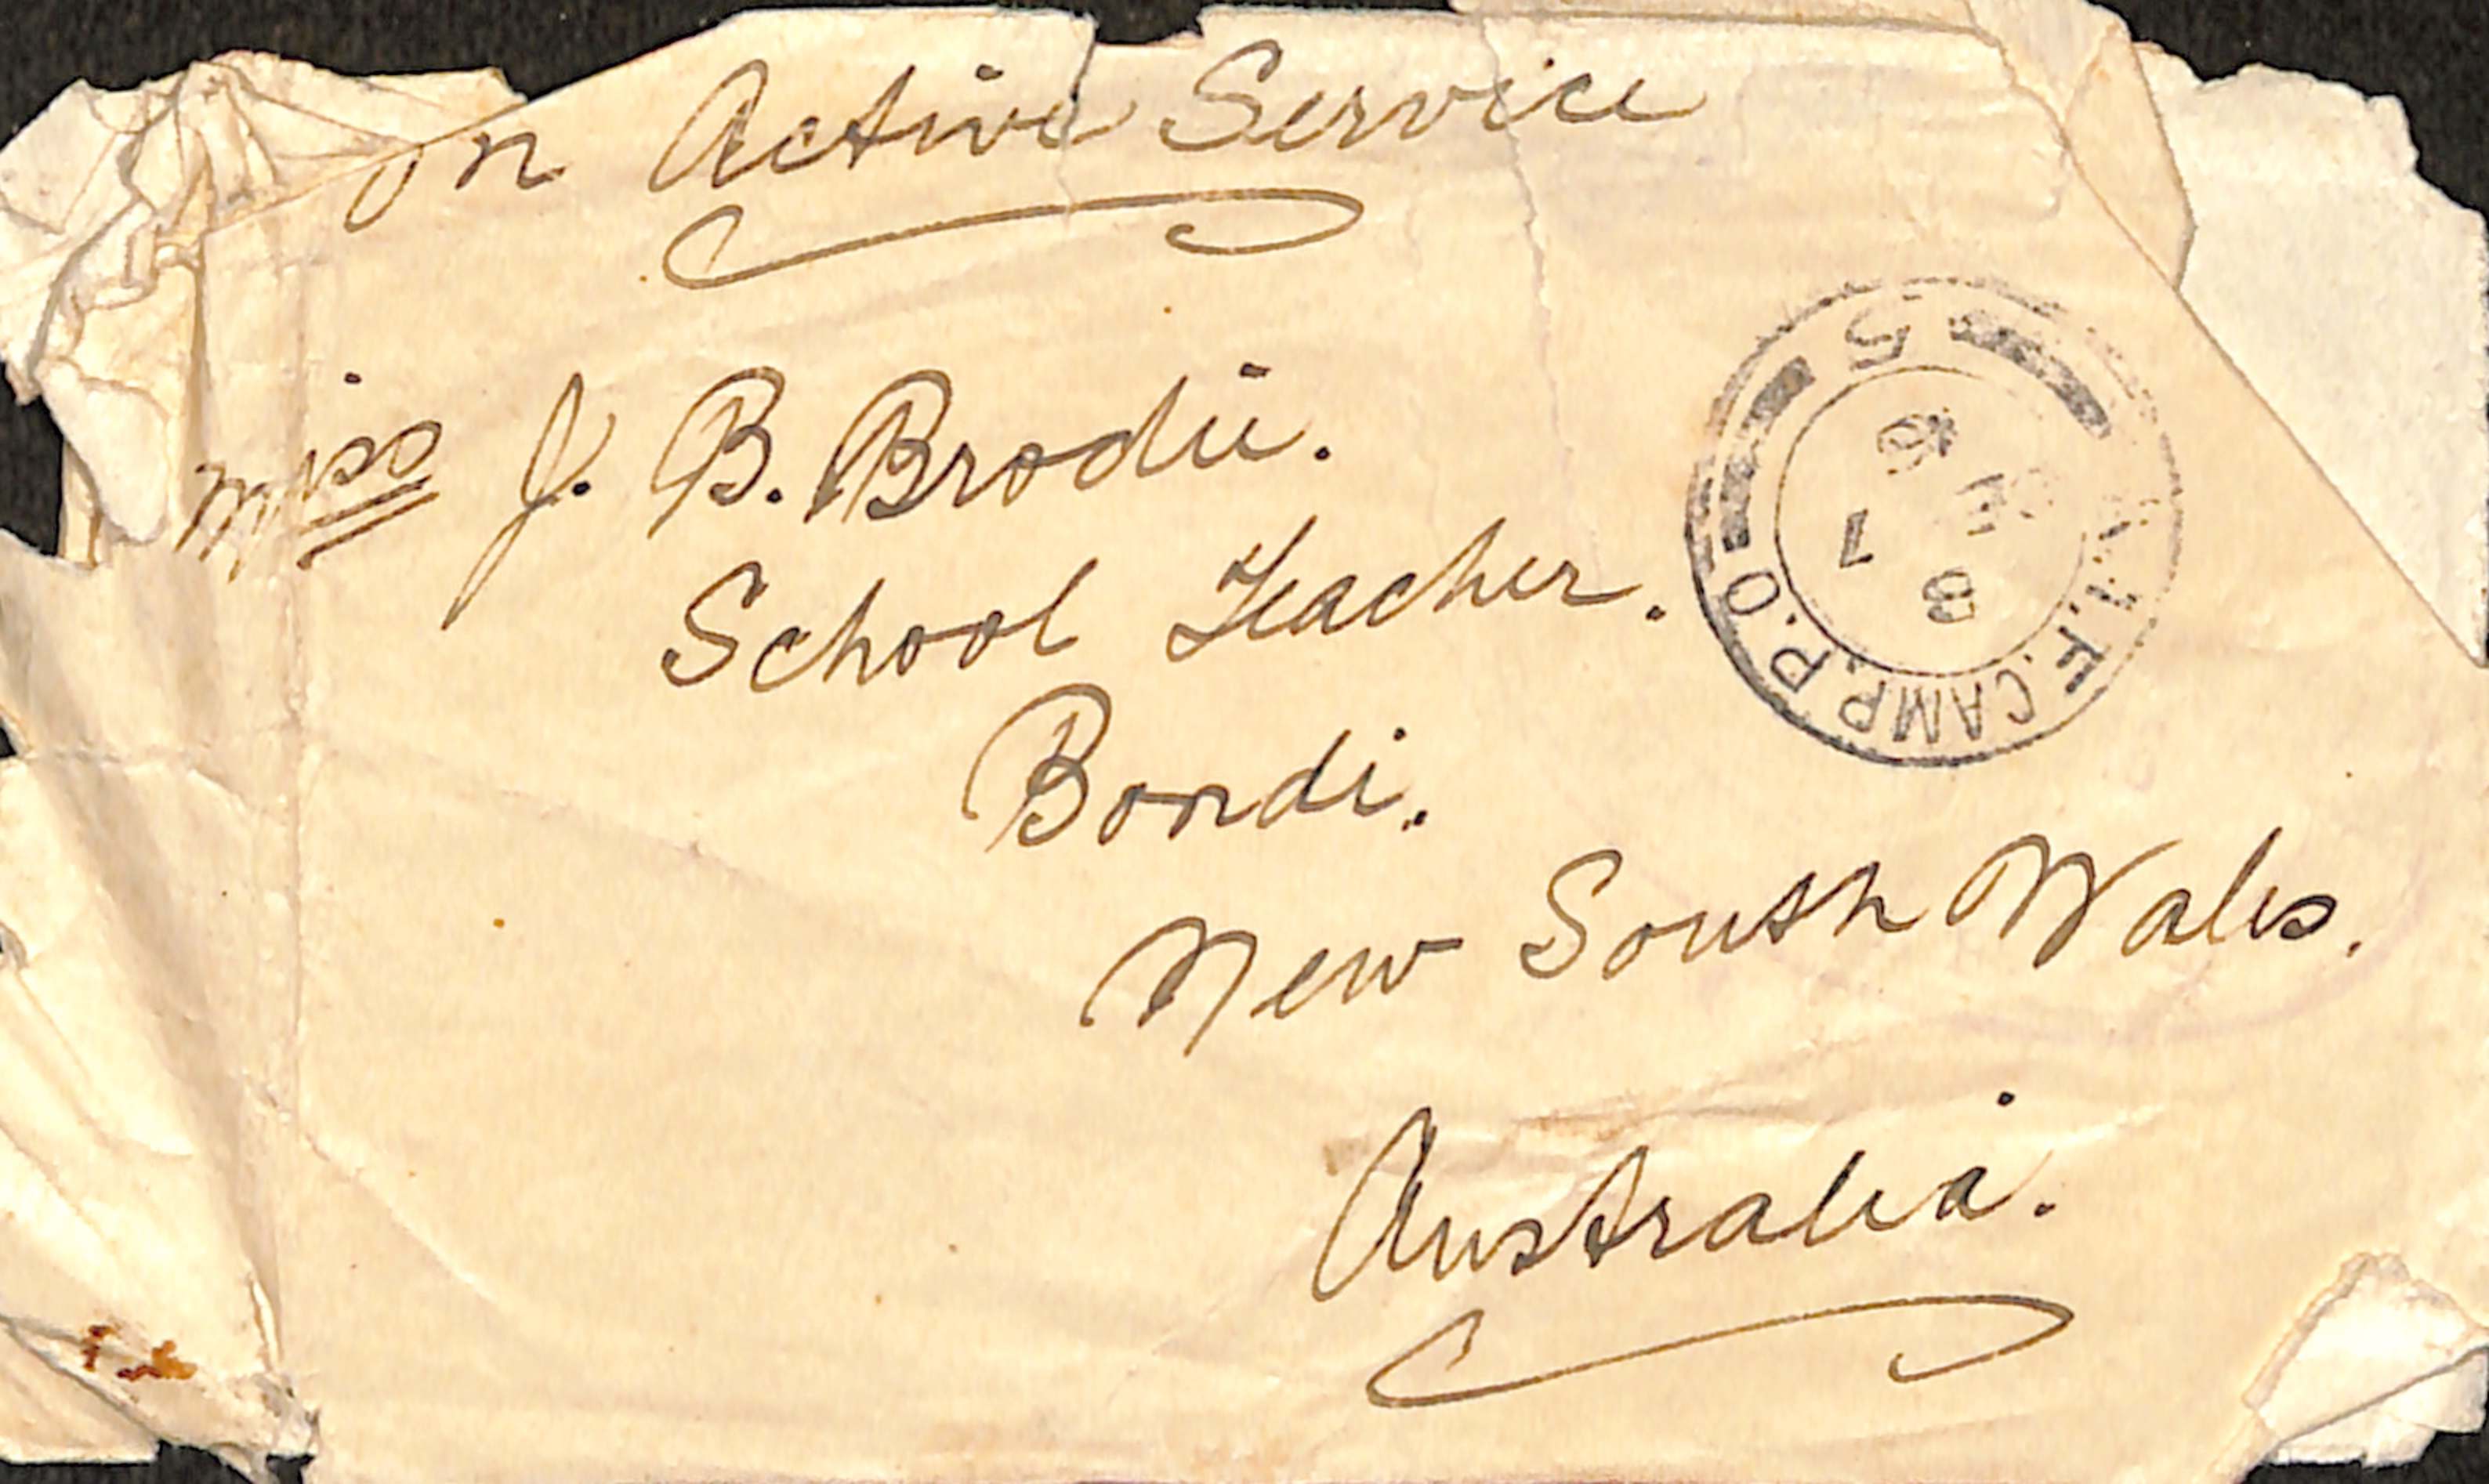 On Active Service
Miss J. B. Brodie.
School Teacher.
Bondi.
New South Wales.
Australia.
A.I.F. CAMP. P.O
5
8
16